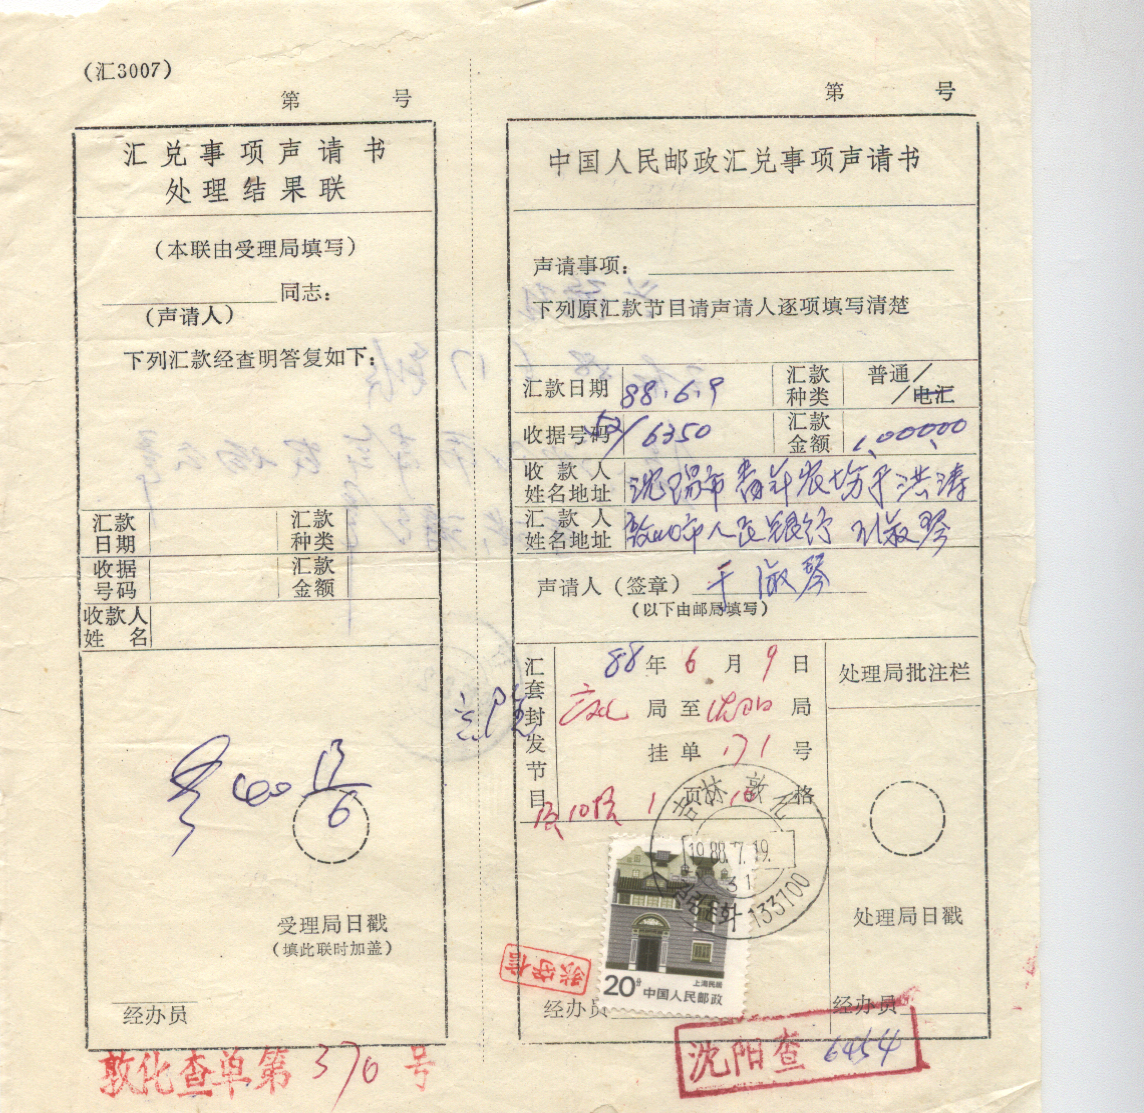 (汇3007)
第 号
汇兑事项声请书
处理结果联
(本联由受理局填写)
同志：
(声请人)
下列汇款经查明答复如下：
汇款日期
汇款种类
收据号码
汇款金额
收款人姓名
受理局日戳
(填此联时加盖)
经办员
敦化查单第 370 号
第 号
中国人民邮政汇兑事项声请书
声请事项：
下列原汇款节目请声请人逐项填写清楚
汇款日期 88.6.9
汇款种类 普通/电汇
收据号码 6350
汇款金额 1,000.00
收款人姓名地址 沈阳市 农场于洪涛
汇款人姓名地址 市人民银行 淑琴
声请人(签章) 于淑琴
(以下由邮局填写)
汇套封发节目
88年6月9日
局至沈阳局
挂单171号
1页 格
处理局批注栏
吉林 敦化
1988.7.19.
133700
20分
上海民居
中国人民邮政
张守信
经办员
处理局日戳
经办员
沈阳查 6454